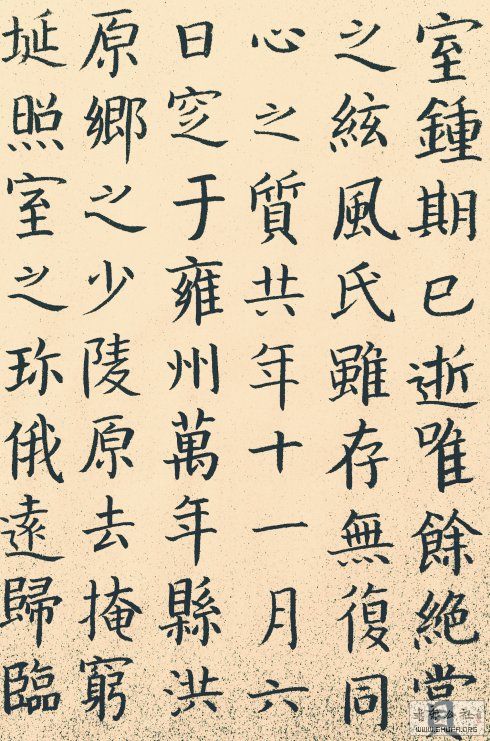 室鍾期已逝唯餘絶賞
之絃風氏雖存無復同
心之質共年十一月六
日窆于雍州萬年縣洪
原鄉之少陵原去掩窮
埏照室之珎俄遠歸臨